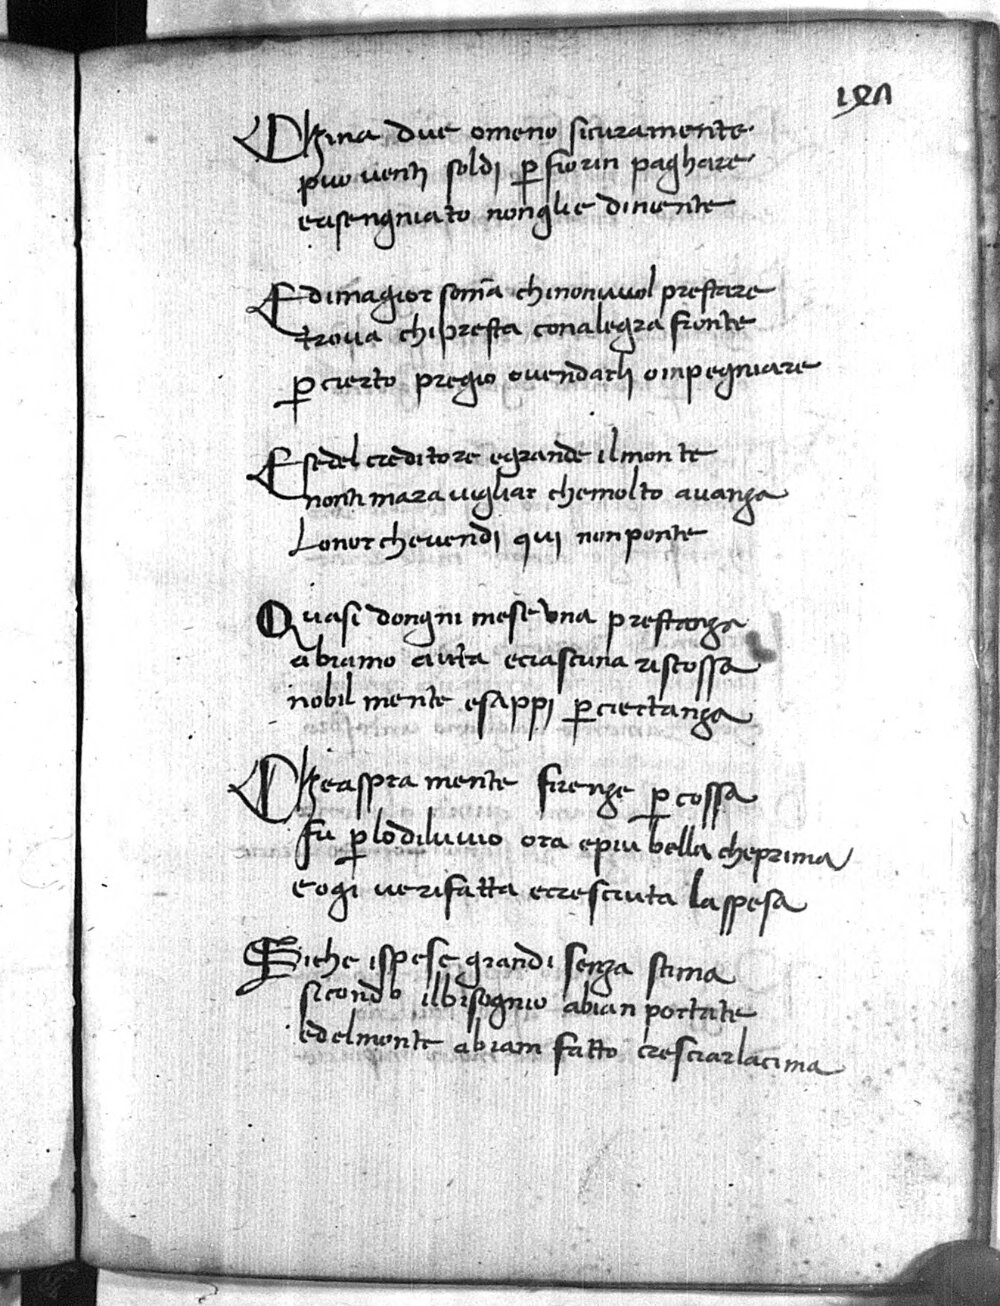 Dzina due omeno sicuramente
puo venti soldi p fiorin paghare
erasengniato nonglie diniente
E dimagior soma chinonvuol prestare
trova chipresta conalegra fronte
p cierto pregio ovendarli o inpegniare
E sedel creditore egrande ilmonte
nonti maravigliar chemolto avanza
Lonor chevendi qui nonponte
Quasi dongni mese una prestanza
abiamo avuta eciascuna riscossa
nobil mente esappi pciertanza
Dzeaspra mente firenze pcossa
fu plodiluvio ora epiu bella cheprima
eogi verifatta ecresciuta laspesa
Siche ispese grandi senza stima
sicondo ilbisognio abian portate
edelmonte abiam fatto cresciarlacima